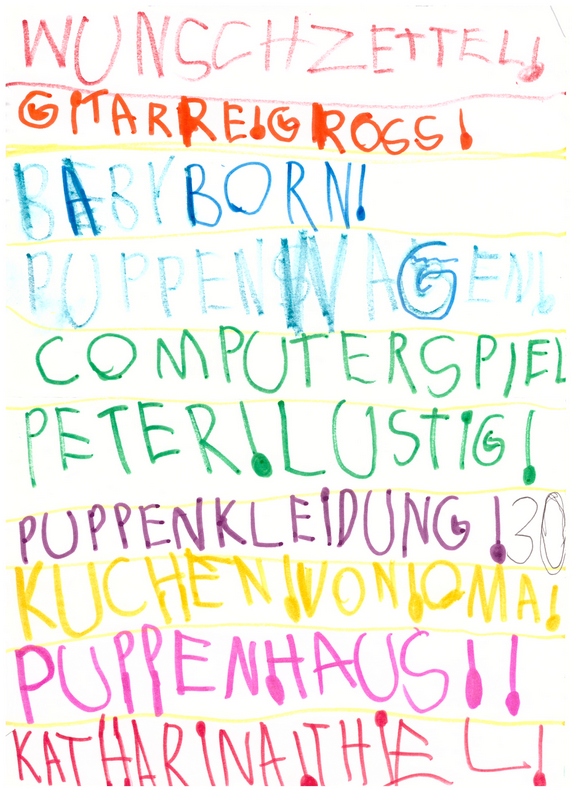 WUNSCHZETTEL!
GITARRE!GROSS!
BABYBORN!
PUPPENWAGEN!
COMPUTERSPIEL
PETER!LUSTIG!
PUPPENKLEIDUNG!30
KUCHEN!VON!OMA!
PUPPENHAUS!!
KATHARINA!THIEL!